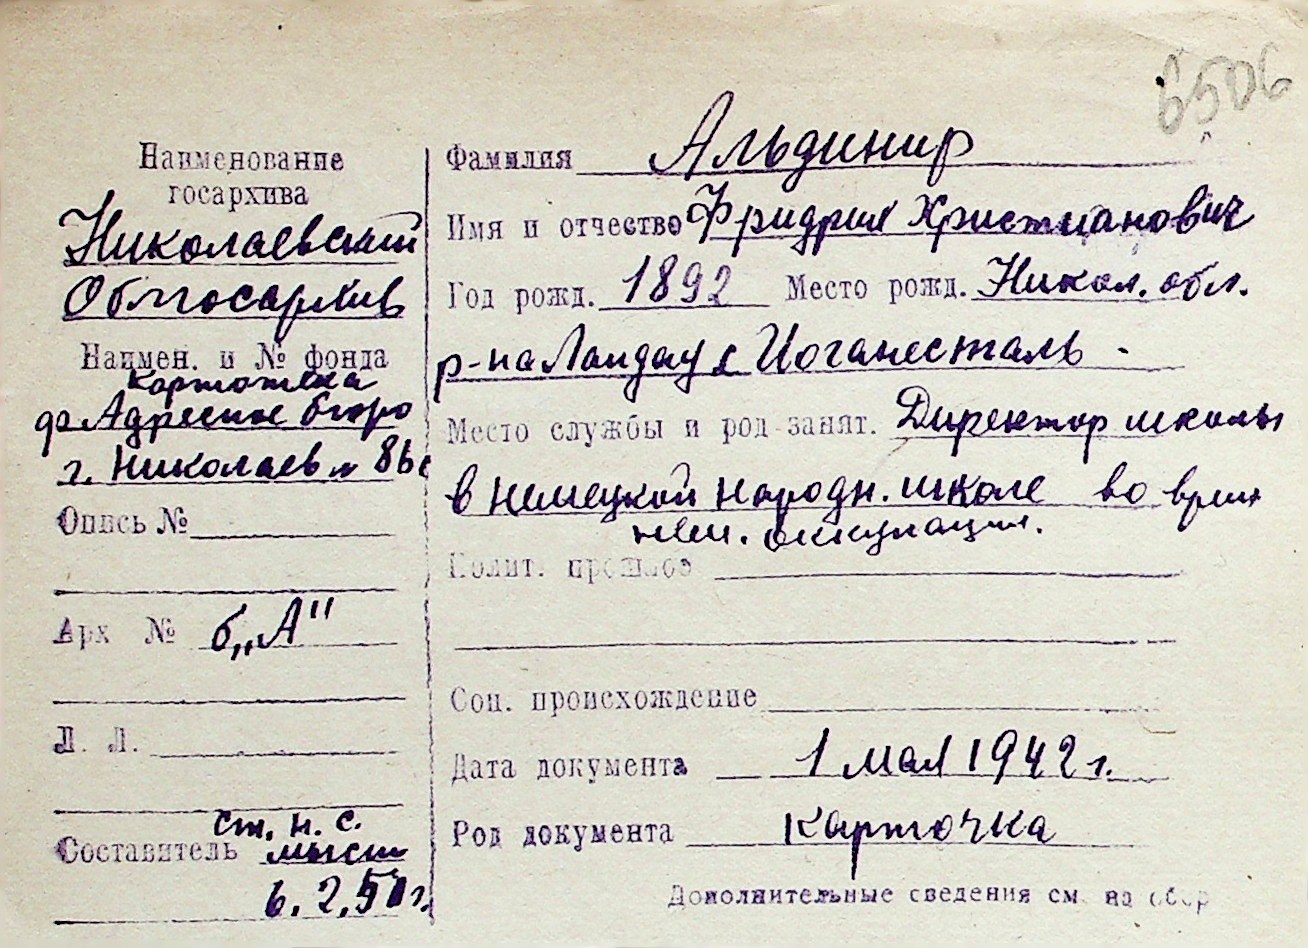 6506
Наименование
госархива
Николаевский
Облгосархив
Наимен. и № фонда
картотека
Адресное бюро
г. Николаев
Опись №
Арх № б „А"
Л. Л.
ст. н. с.
Составитель
6.2.50 г.
Фамилия Альдинир
Имя и отчество Фридрих Христианович
Год рожд. 1892 Место рожд. Никол. обл.
р-на Ландау с Иоганесталь -
Место службы и род занят. Директор школы
в немецкой народн. школе во врем
нем. оккупации.
Полит. прошлое
Соц. происхождение
Дата документа 1 мая 1942 г.
Род документа карточка
Дополнительные сведения см. на обор